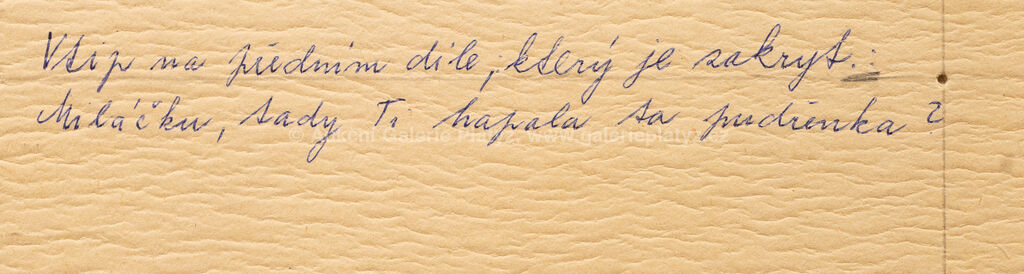 Vtip na předním díle, který je zakryt.:
Miláčku, tady Ti hapala ta pudřenka?
© Aukční Galerie Platýz, www.galerieplatyz.cz